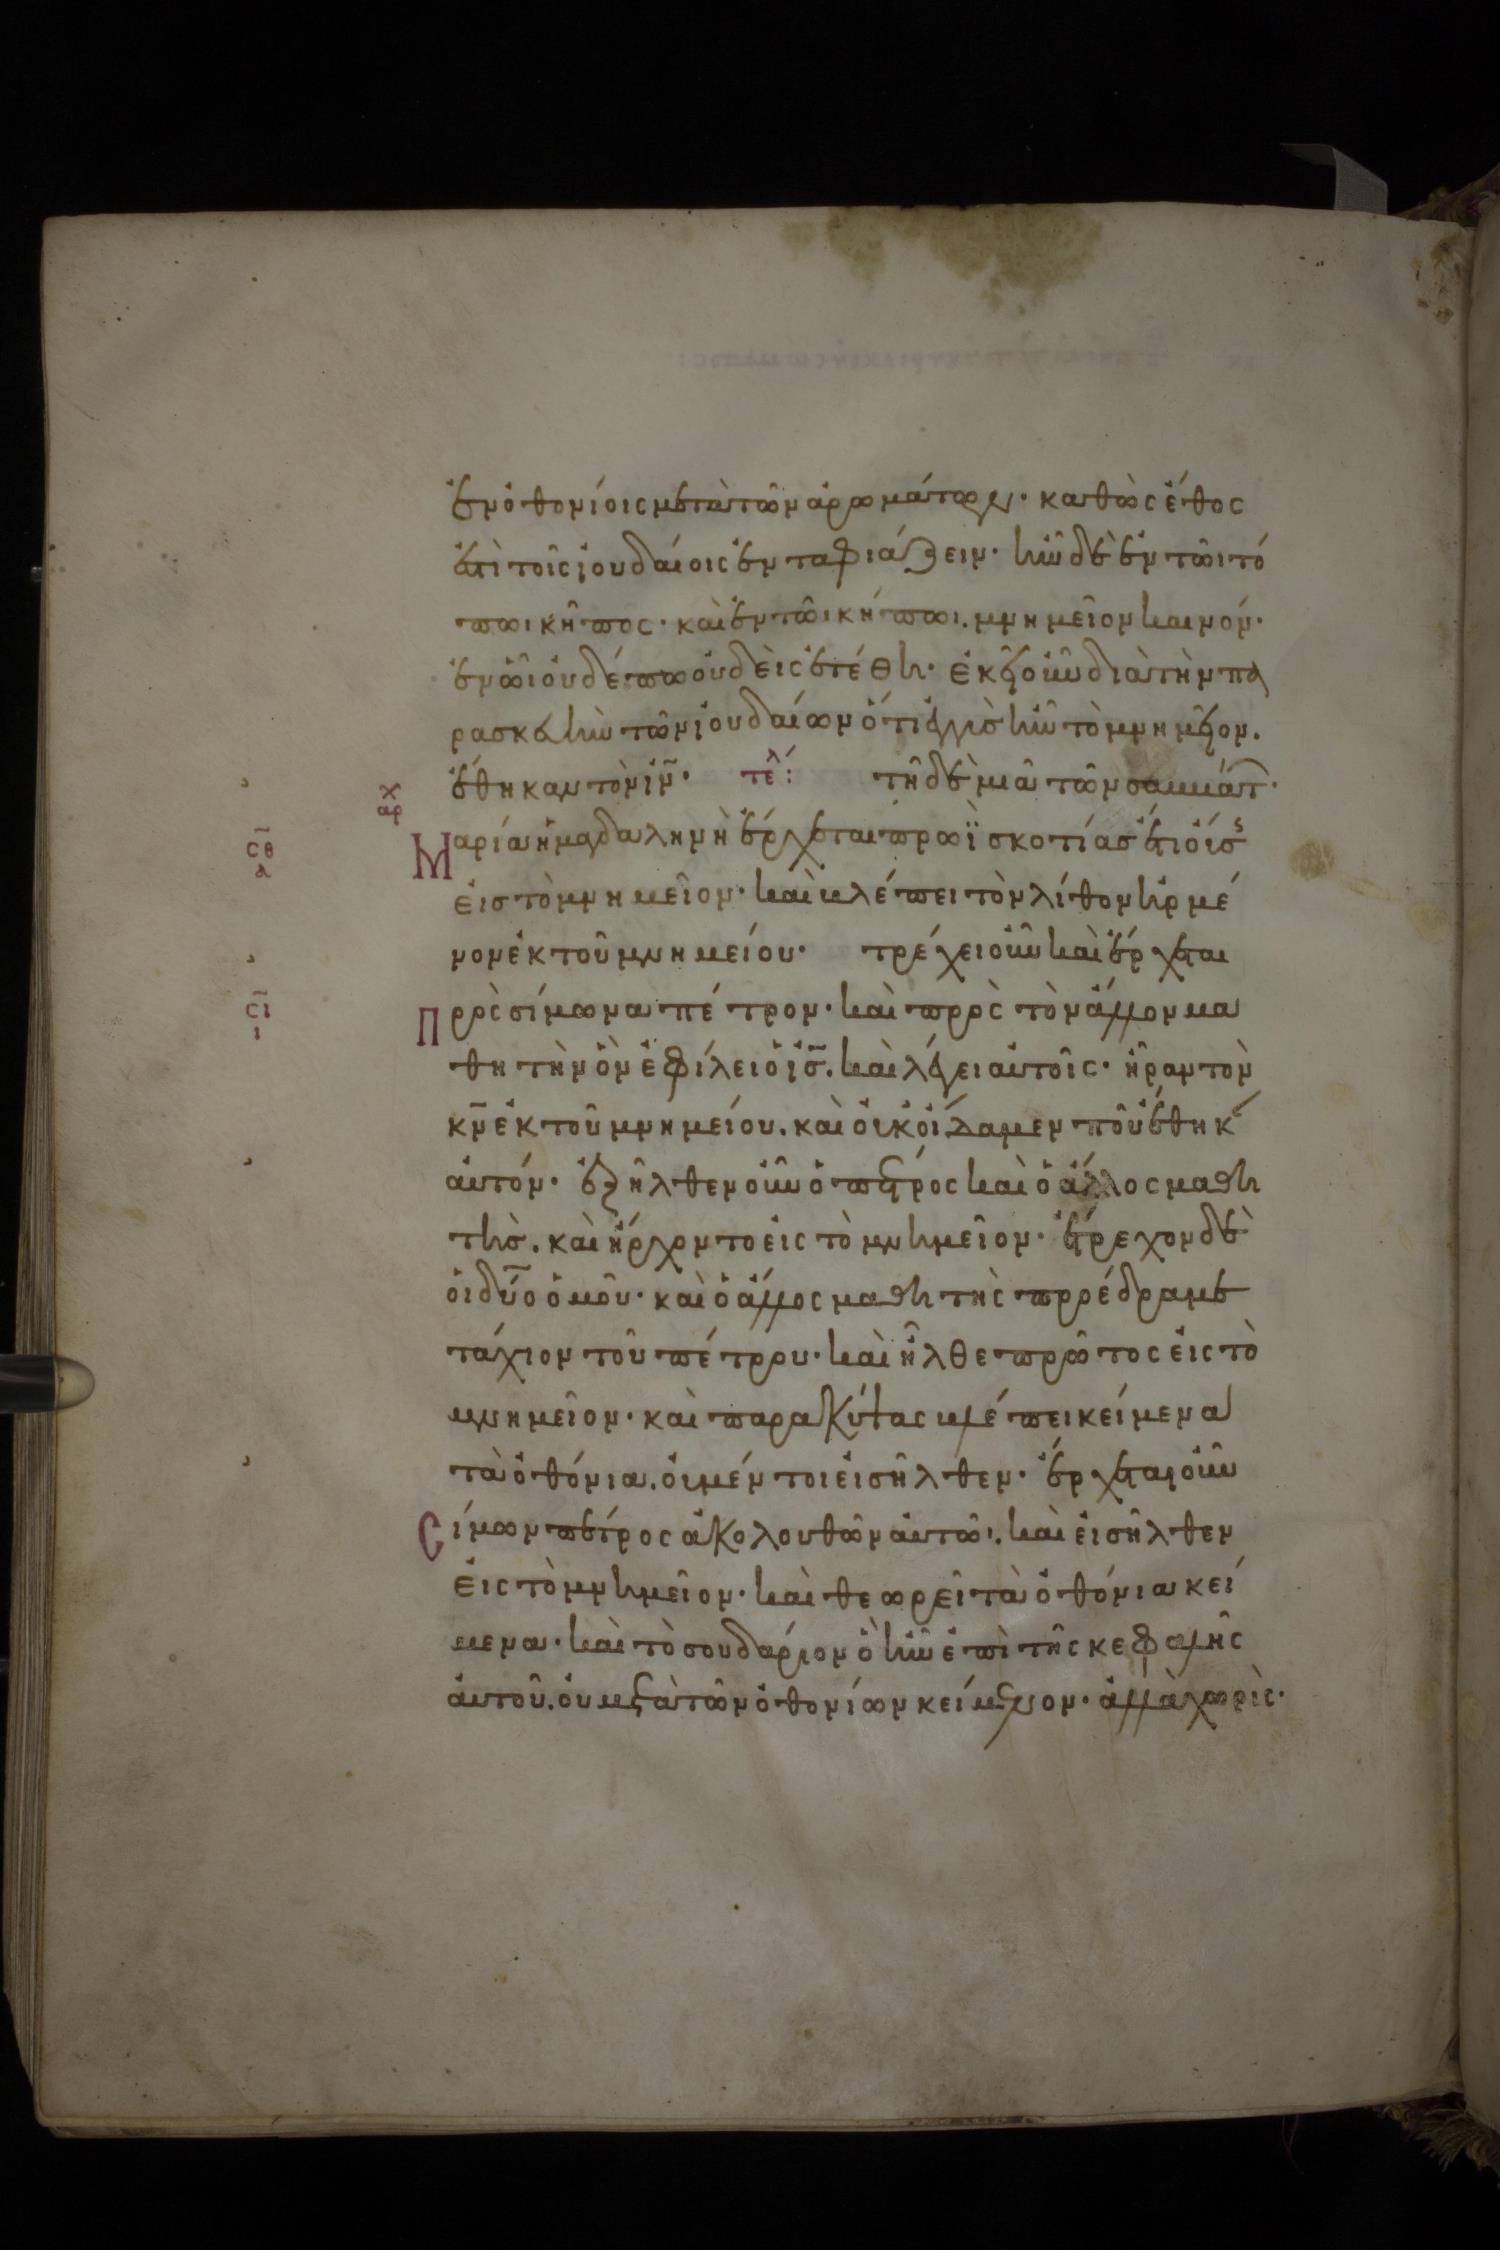 ἐν ὀθονίοις μετὰ τῶν ἀρωμάτων· καθὼς ἔθος
ἐστὶ τοῖς ἰουδαίοις ἐνταφιάζειν· ἦν δὲ ἐν τῶι τό
πωι κῆπος· καὶ ἐν τῶι κήπωι. μνημεῖον καινόν·
ἐν ὧι οὐδέπω οὐδεὶς ἐτέθη· ἐκεῖ οὖν διὰ τὴν πα
ρασκευὴν τῶν ἰουδαίων ὅτι ἐγγὺς ἦν τὸ μνημεῖον.
ἔθηκαν τὸν ἰν̄· τελ: τῆ δὲ μιᾶ τῶν σαββάτ·
χ
αρ
Μαρία ἡ μαγδαληνὴ ἔρχεται πρωῒ σκοτίας ἔτι οὔσς
σ̄θ
α
εἰς τὸ μνημεῖον· καὶ βλέπει τὸν λίθον ἠρμέ
νον ἐκ τοῦ μνημείου· τρέχει οὖν καὶ ἔρχεται
σ̄ι
ι
Πρὸς σίμωνα πέτρον· καὶ πρὸς τὸν ἄλλον μα
θητὴν ὃν ἐφίλει ὁ ἰσ̄. καὶ λέγει αὐτοῖς· ἦραν τὸν
κν̄ ἐκ τοῦ μνημείου. καὶ οὐκ οἴδαμεν ποῦ ἔθηκ
αὐτόν· ἐξῆλθεν οὖν ὁ πέτρος καὶ ὁ ἄλλος μαθη
τὴς. καὶ ἤρχοντο εἰς τὸ μνημεῖον· ἔτρεχον δὲ
οἱ δύο ὁμοῦ· καὶ ὁ ἄλλος μαθητὴς προέδραμε
τάχιον τοῦ πέτρου· καὶ ἦλθε πρῶτος εἰς τὸ
μνημεῖον· καὶ παρακύψας βλέπει κείμενα
τὰ ὀθόνια. οὐ μέντοι εἰσῆλθεν· ἔρχεται οὖν
Σίμων πέτρος ἀκολουθῶν αὐτῶι. καὶ εἰσῆλθεν
εἰς τὸ μνημεῖον· καὶ θεωρεῖ τὰ ὀθόνια κεί
μενα· καὶ τὸ σουδάριον ὃ ἦν ἐπὶ τῆς κεφαλῆς
αὐτοῦ. οὐ μετὰ τῶν ὀθονίων κείμενον· ἀλλὰ χωρὶς·